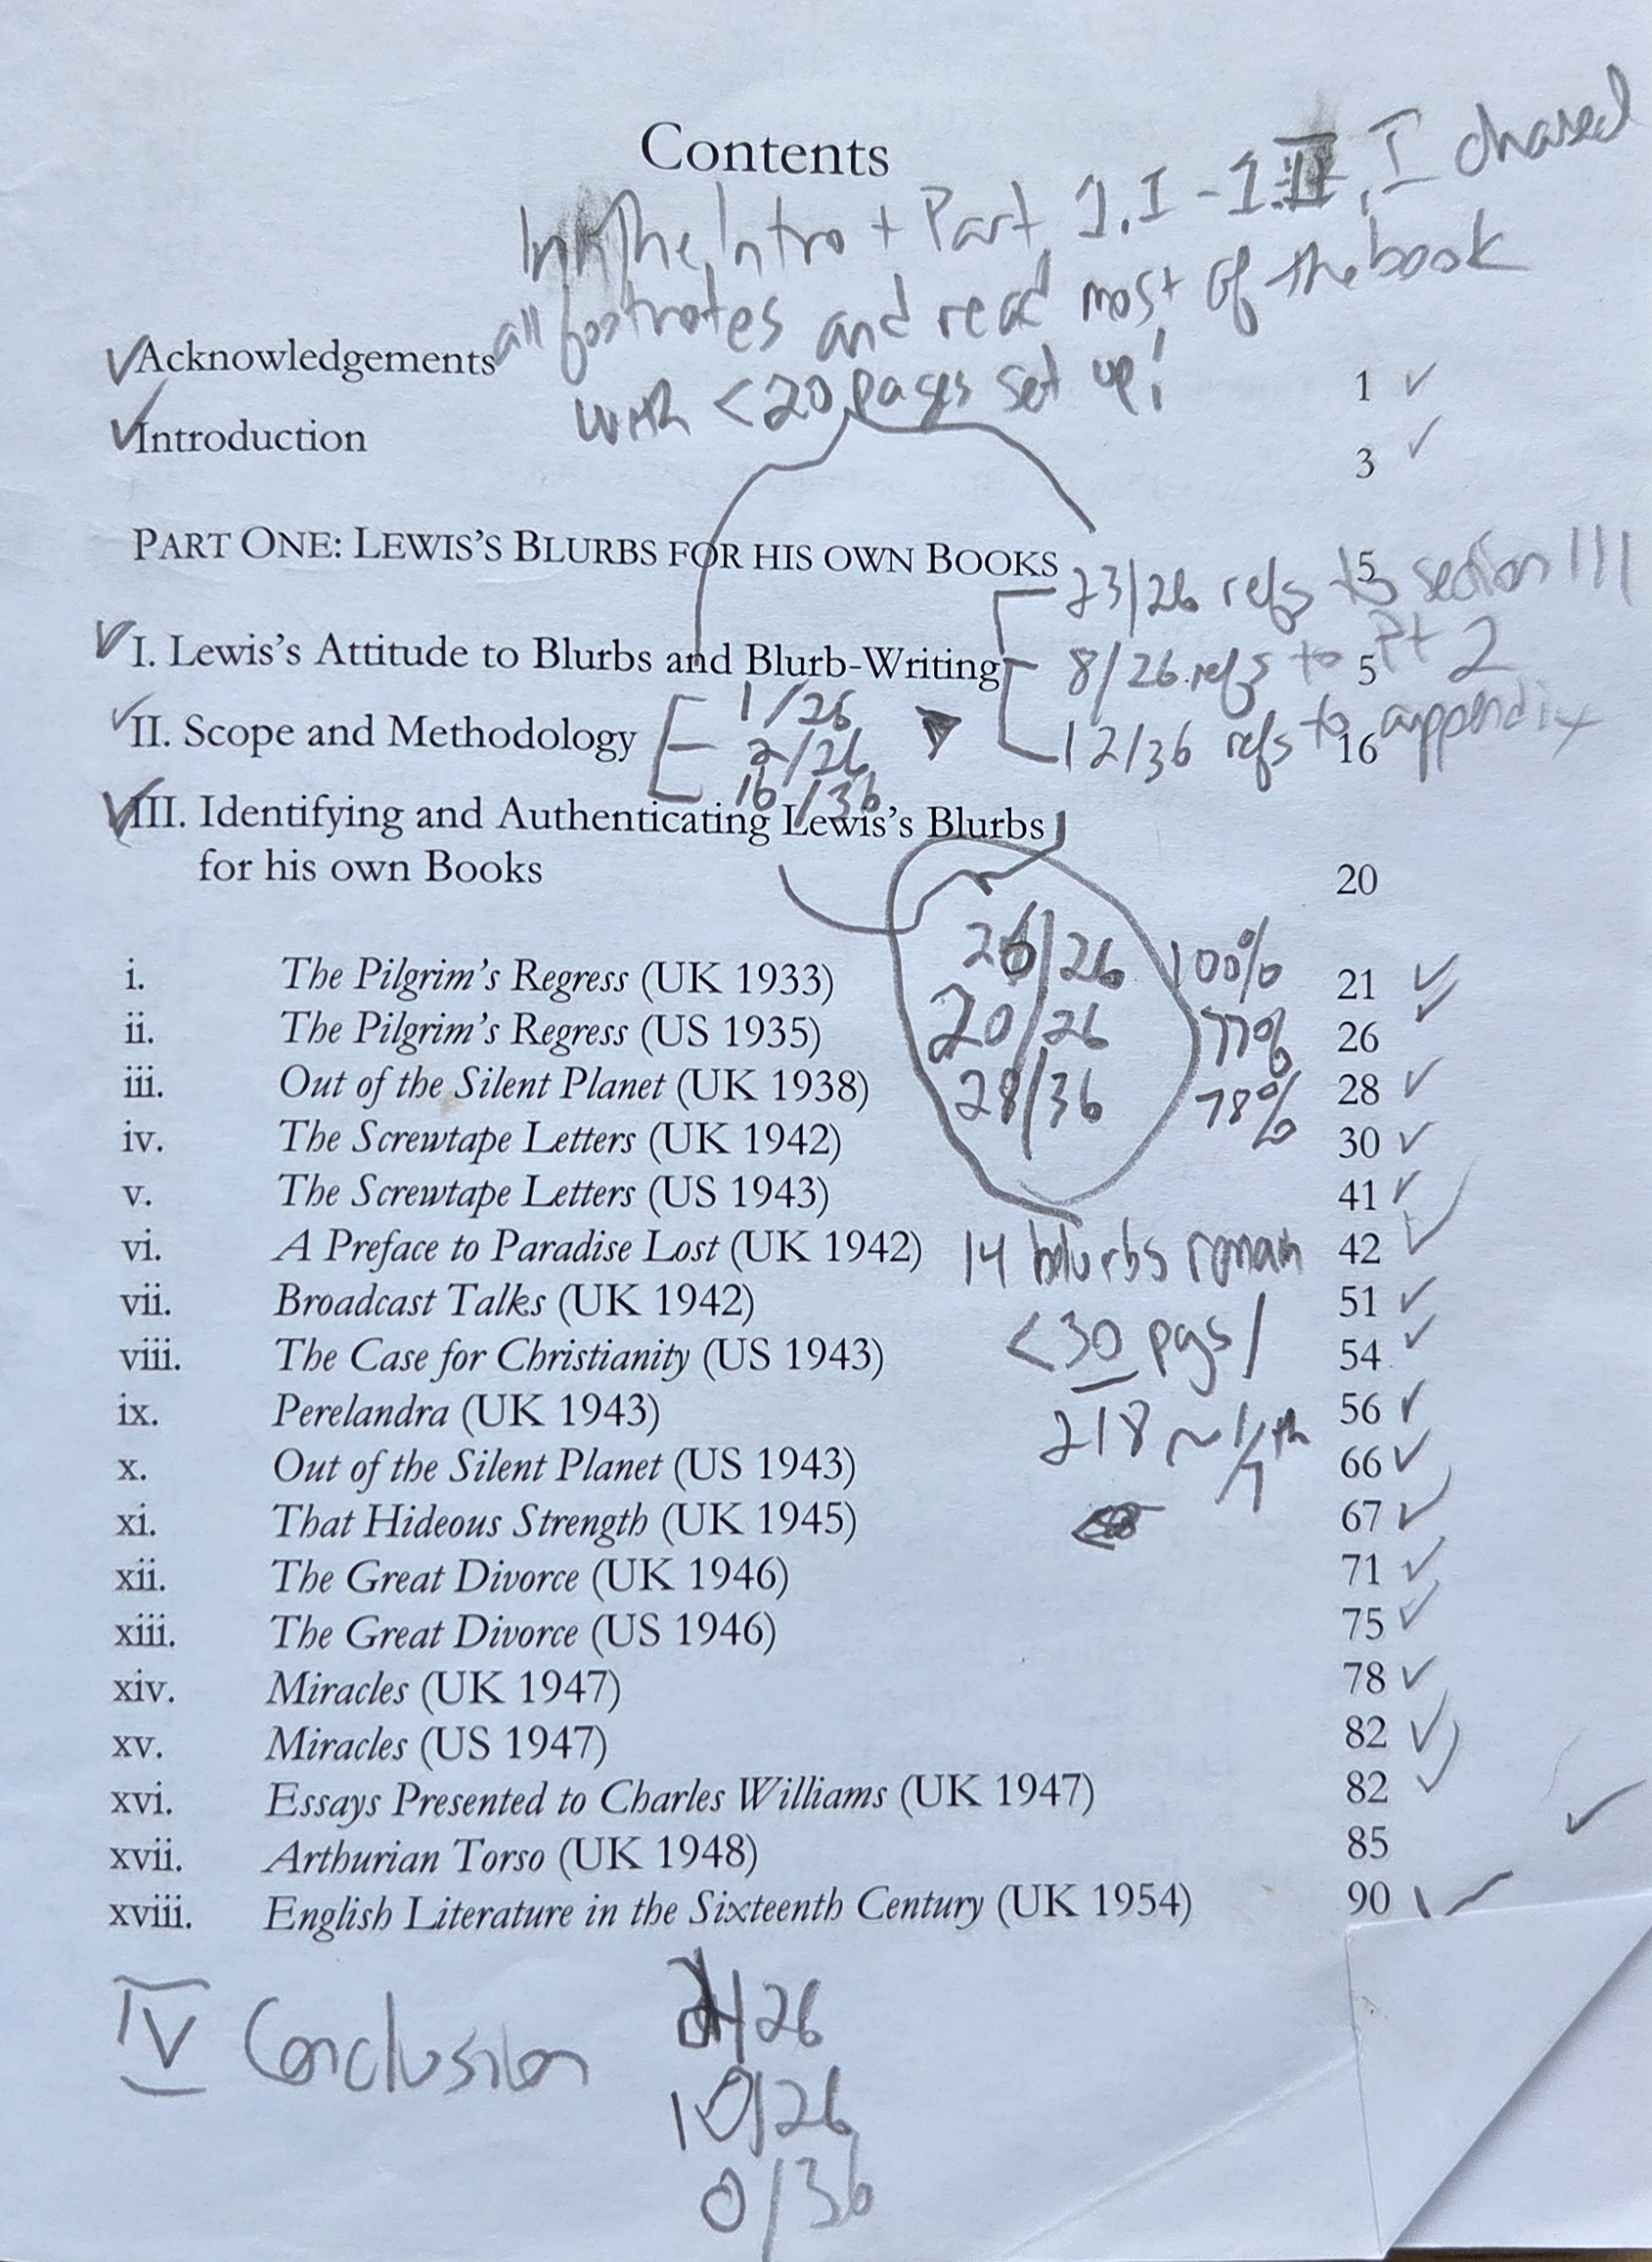 Contents
In the Intro + Part 1.I - 1.II, I chased
all footnotes and read most of the book
with <20 pages set up!
Acknowledgements 1
Introduction 3
PART ONE: LEWIS'S BLURBS FOR HIS OWN BOOKS 5
23/26 refs to section III
I. Lewis's Attitude to Blurbs and Blurb-Writing 5
8/26 refs to Pt 2
12/36 refs to appendix
II. Scope and Methodology 16
1/26
2/26
16/36
III. Identifying and Authenticating Lewis's Blurbs
for his own Books 20
26/26 100%
20/26 77%
28/36 78%
i. The Pilgrim's Regress (UK 1933) 21
ii. The Pilgrim's Regress (US 1935) 26
iii. Out of the Silent Planet (UK 1938) 28
iv. The Screwtape Letters (UK 1942) 30
v. The Screwtape Letters (US 1943) 41
vi. A Preface to Paradise Lost (UK 1942) 42
14 blurbs remain
<30 pgs/
218 ~ 1/7th
vii. Broadcast Talks (UK 1942) 51
viii. The Case for Christianity (US 1943) 54
ix. Perelandra (UK 1943) 56
x. Out of the Silent Planet (US 1943) 66
xi. That Hideous Strength (UK 1945) 67
xii. The Great Divorce (UK 1946) 71
xiii. The Great Divorce (US 1946) 75
xiv. Miracles (UK 1947) 78
xv. Miracles (US 1947) 82
xvi. Essays Presented to Charles Williams (UK 1947) 82
xvii. Arthurian Torso (UK 1948) 85
xviii. English Literature in the Sixteenth Century (UK 1954) 90
IV Conclusion
/26
10/26
0/36